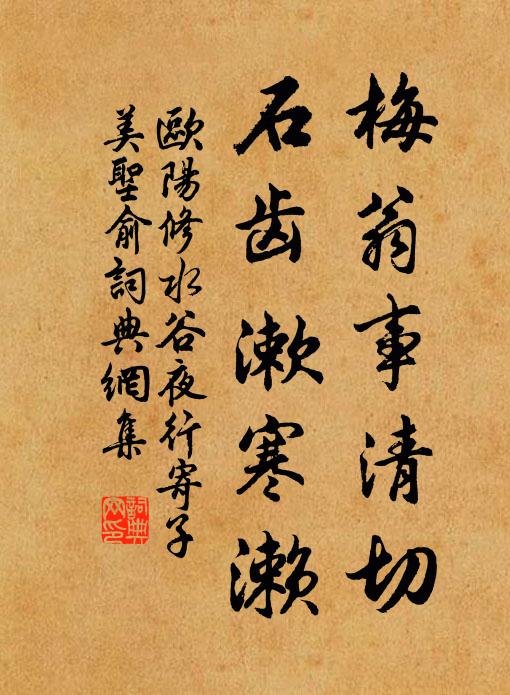 梅翁事清切
石齿漱寒濑
歐陽修水谷夜行寄子
美聖俞詞典網集
詞典
网印